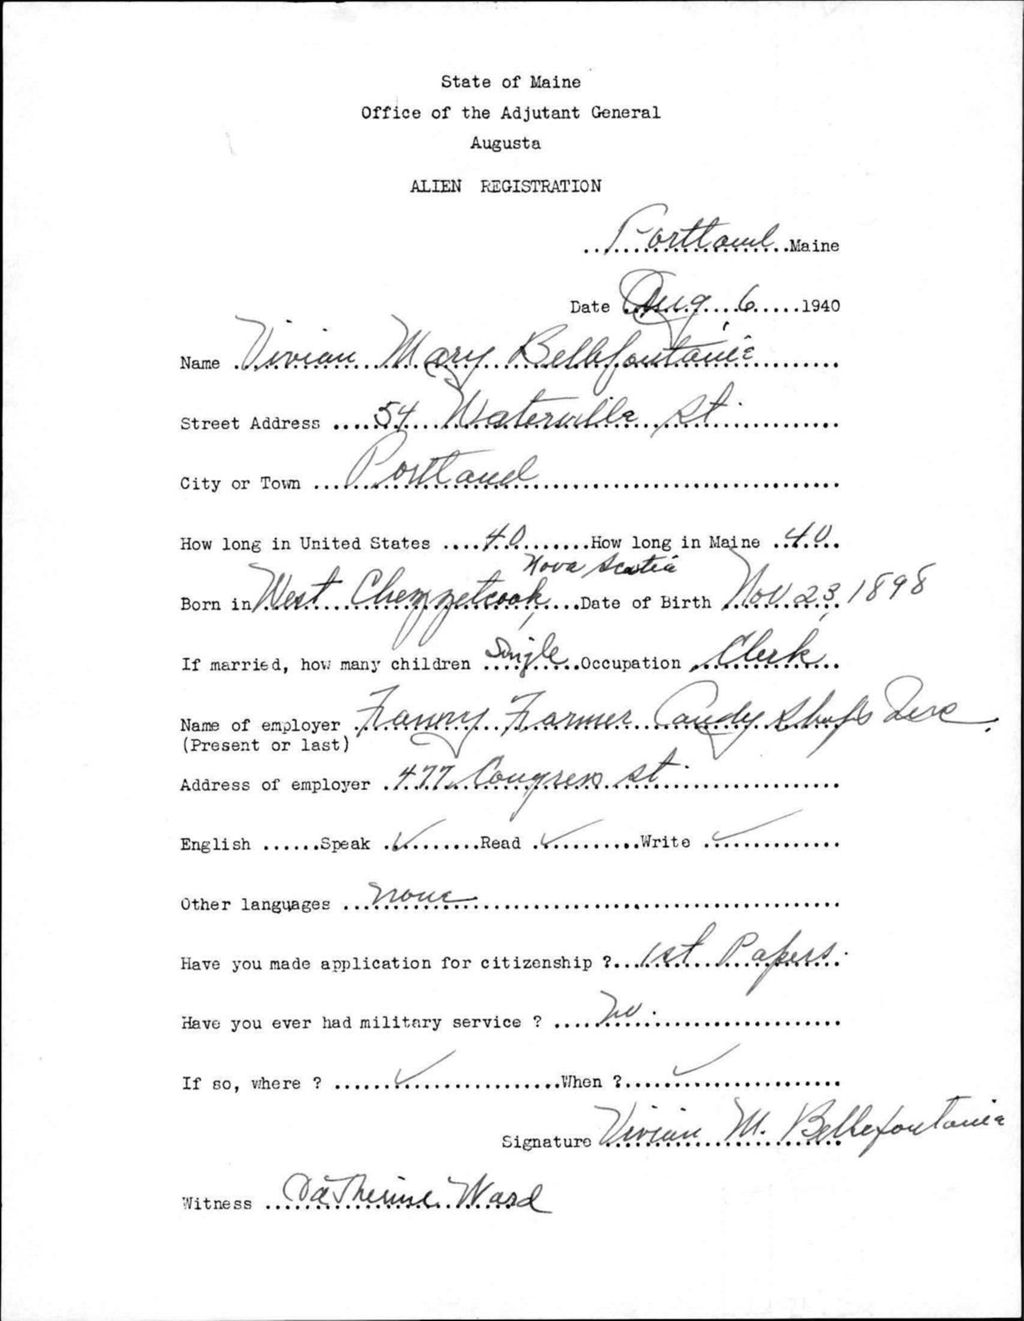 State of Maine
Office of the Adjutant General
Augusta
ALIEN REGISTRATION
Portland Maine
Date Aug 6 1940
Name Vivian Mary Bellefontaine
Street Address 54 Waterville St.
City or Town Portland
How long in United States 40 How long in Maine 40
Nova Scotia
Born in West Chezzetcook, Date of Birth Nov 23, 1898
If married, how many children Single Occupation Clerk
Name of employer Fanny Farmer Candy Shops Inc.
(Present or last)
Address of employer 477 Congress St.
English ......Speak ✓ Read ✓ Write ✓
Other languages none
Have you made application for citizenship ? 1st Papers.
Have you ever had military service ? no.
If so, where ? ✓ When ? ✓
Signature Vivian M. Bellefontaine
Witness Catherine Ward